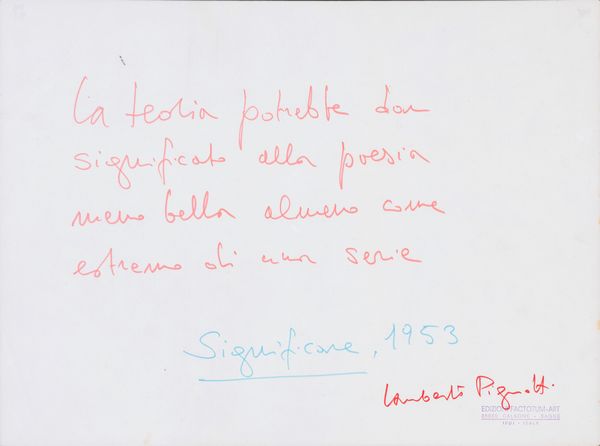 La teoria potrebbe dar
significato alla poesia
meno bella almeno come
estremo di una serie
Significare, 1953
Lamberto Pignotti
EDIZIONI FACTOTUM-ART
1981 - ITALY